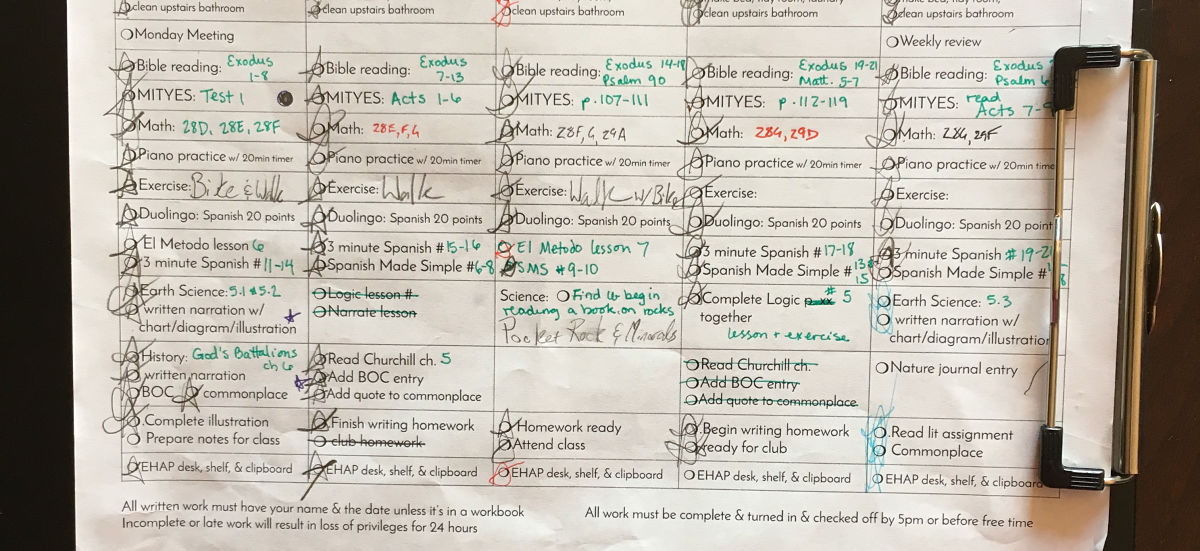 clean upstairs bathroom
clean upstairs bathroom
clean upstairs bathroom
clean upstairs bathroom
clean upstairs bathroom
Monday Meeting
Weekly review
Bible reading: Exodus 1-8
Bible reading: Exodus 7-13
Bible reading: Exodus 14-18 Psalm 90
Bible reading: Exodus 19-21 Matt. 5-7
Bible reading: Exodus Psalm
MITYES: Test 1
MITYES: Acts 1-6
MITYES: p. 107-111
MITYES: p. 112-119
MITYES: read Acts 7-
Math: 28D, 28E, 28F
Math: 28E, F, G
Math: 28F, G, 29A
Math: 28G, 29D
Math: 28G, 29F
Piano practice w/ 20min timer
Piano practice w/ 20min timer
Piano practice w/ 20min timer
Piano practice w/ 20min timer
Piano practice w/ 20min time
Exercise: Bike & Walk
Exercise: Walk
Exercise: Walk w/ Bike
Exercise:
Exercise:
Duolingo: Spanish 20 points
Duolingo: Spanish 20 points
Duolingo: Spanish 20 points
Duolingo: Spanish 20 points
Duolingo: Spanish 20 point
El Metodo lesson 6
3 minute Spanish #15-16
El Metodo lesson 7
3 minute Spanish #17-18
3 minute Spanish #19-21
3 minute Spanish #11-14
Spanish Made Simple #6-8
SMS #9-10
Spanish Made Simple #13 15
Spanish Made Simple #
Earth Science: 5.1 & 5.2
written narration w/
chart/diagram/illustration
Logic lesson #
Narrate lesson
Science: Find & begin
reading a book on rocks
Pocket Rock & Minerals
Complete Logic # 5
together
lesson + exercise
Earth Science: 5.3
written narration w/
chart/diagram/illustration
History: God's Battalions
ch 6
written narration
BOC commonplace
Read Churchill ch. 5
Add BOC entry
Add quote to commonplace
Read Churchill ch.
Add BOC entry
Add quote to commonplace
Nature journal entry
Complete illustration
Prepare notes for class
Finish writing homework
club homework
Homework ready
Attend class
Begin writing homework
ready for club
Read lit assignment
Commonplace
EHAP desk, shelf, & clipboard
EHAP desk, shelf, & clipboard
EHAP desk, shelf, & clipboard
EHAP desk, shelf, & clipboard
EHAP desk, shelf, & clipboard
All written work must have your name & the date unless it's in a workbook
Incomplete or late work will result in loss of privileges for 24 hours
All work must be complete & turned in & checked off by 5pm or before free time